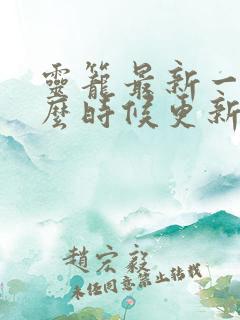 靈籠最新一
麼時候更新
趙宏毅
未经同意禁止转载